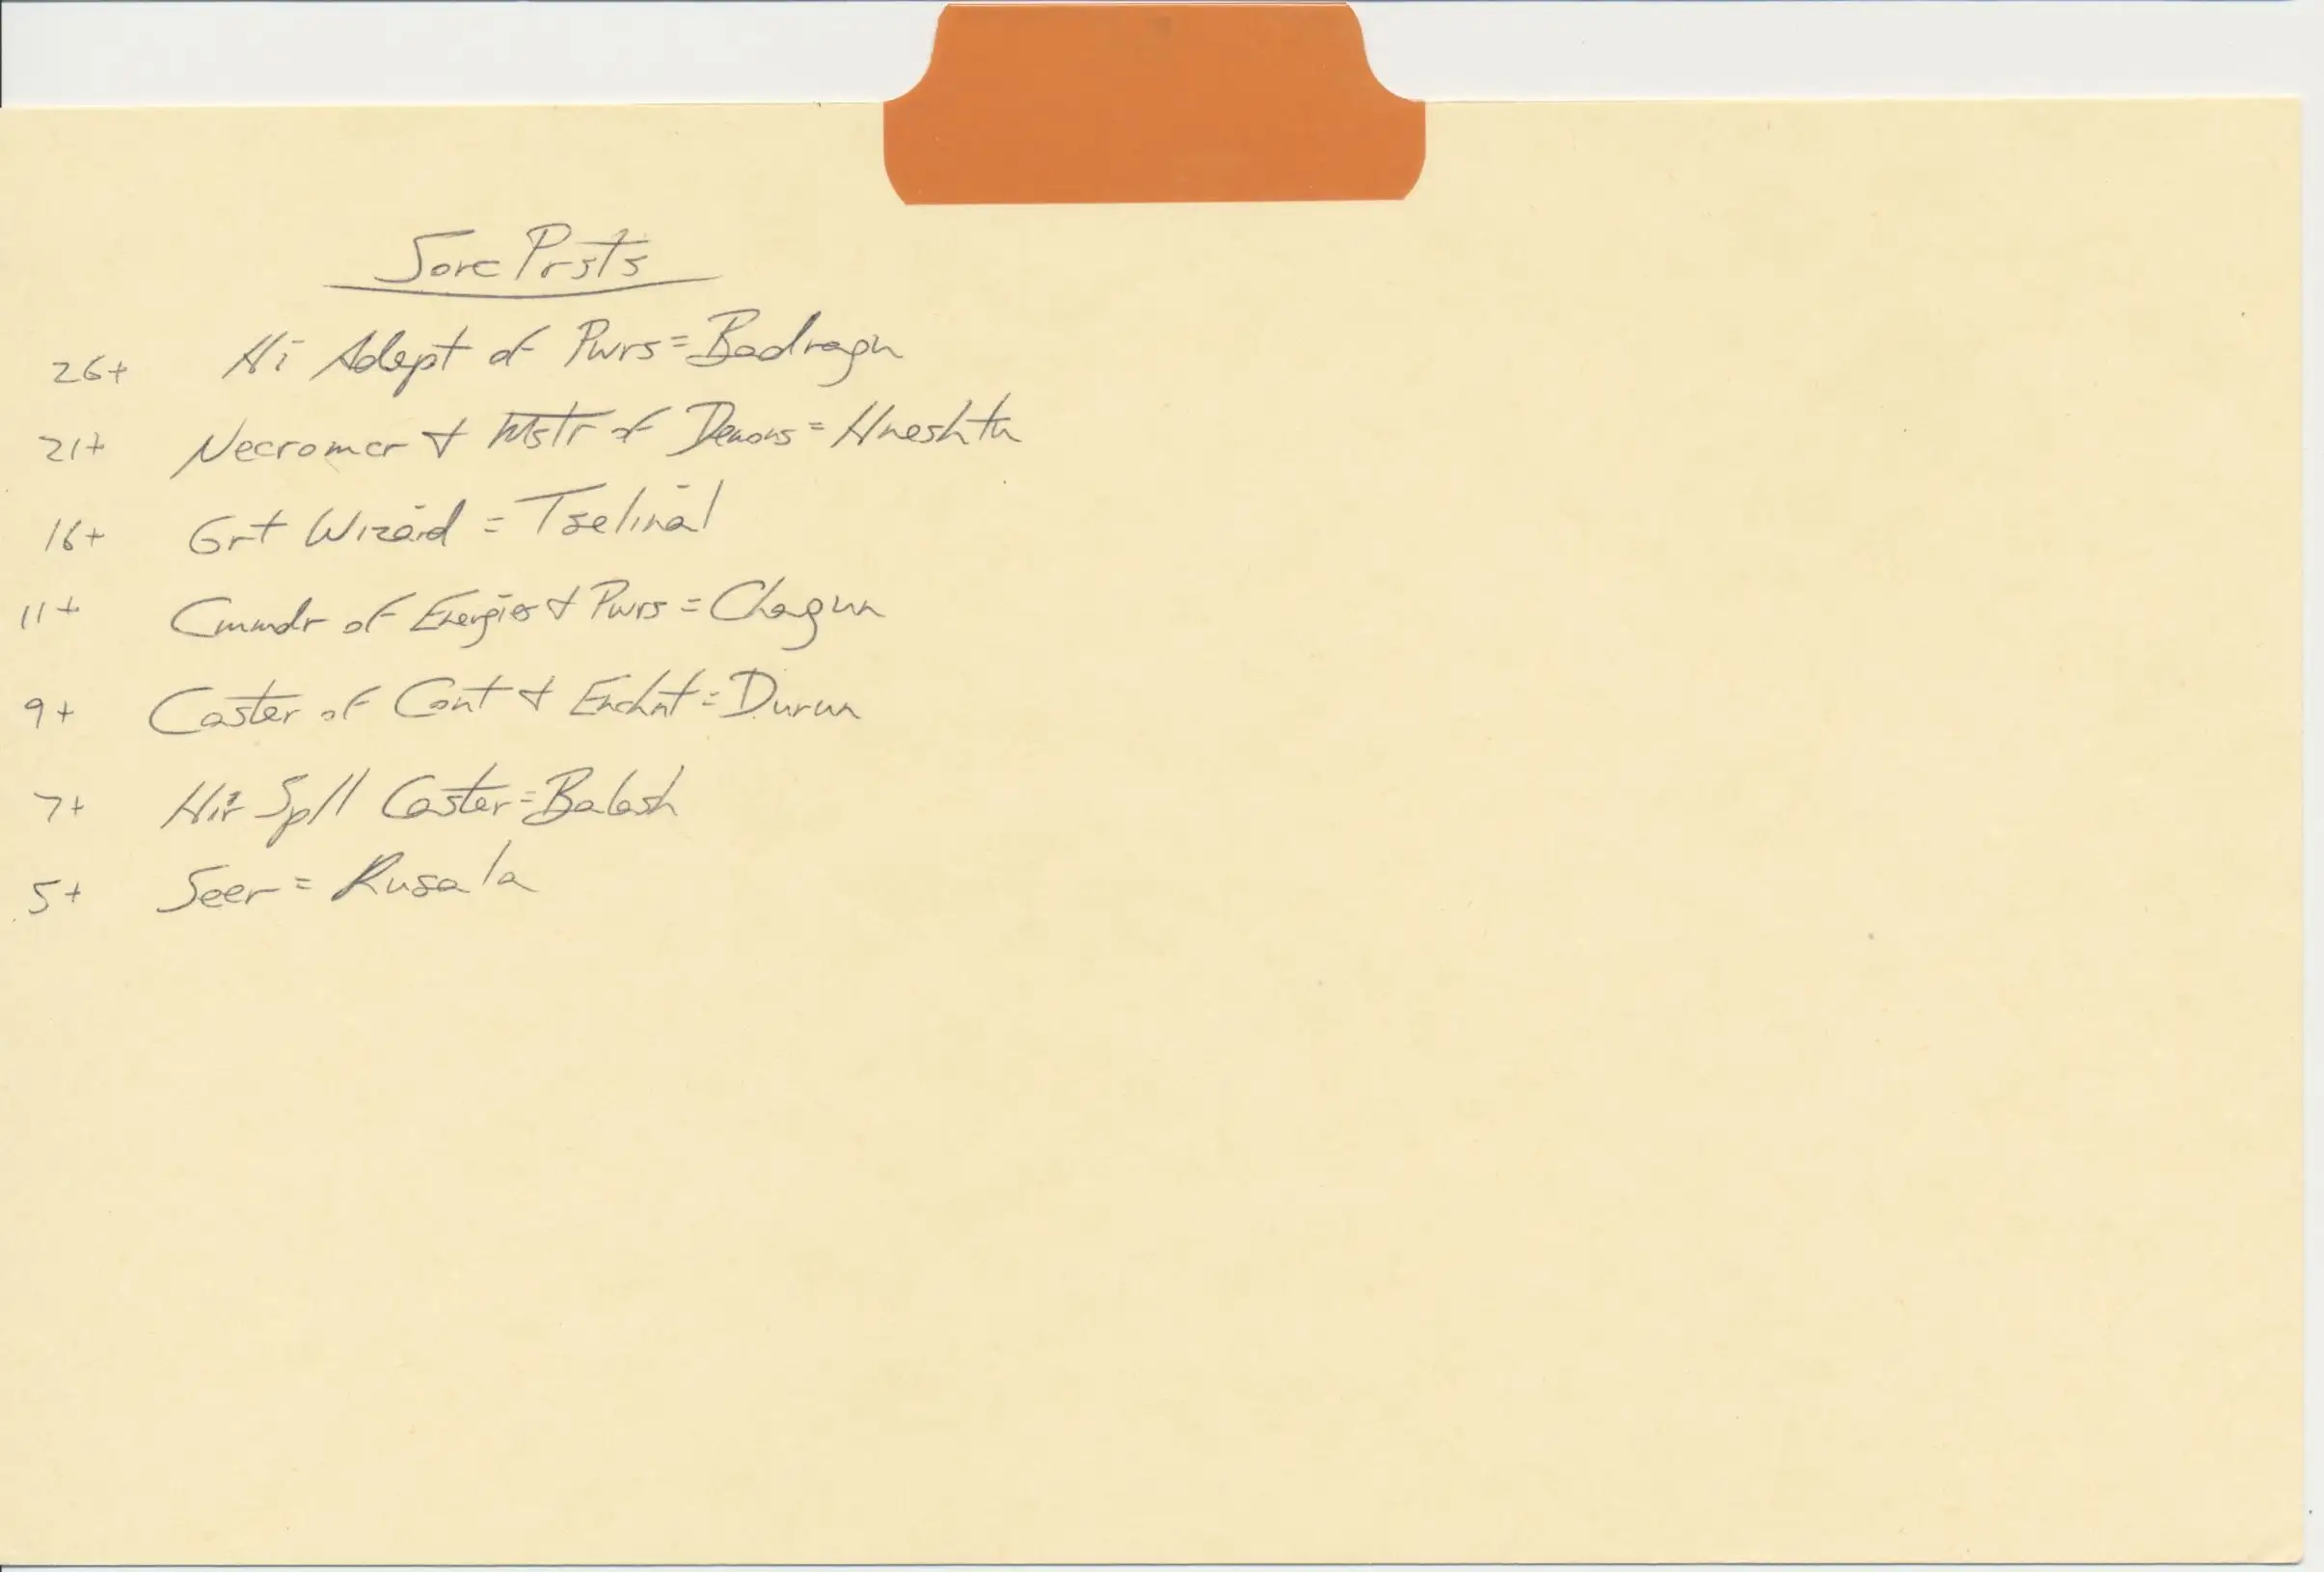 Sorc Prsts
26+ Hi Adept of Pwrs = Badragu
21+ Necromcr & Mstr of Demons = Hneshtu
16+ Grt Wizard = Tselinal
11+ Cmmdr of Energies & Pwrs = Chagun
9+ Caster of Cont & Enchnt = Durun
7+ Hir Spll Caster = Balash
5+ Seer = Rusala